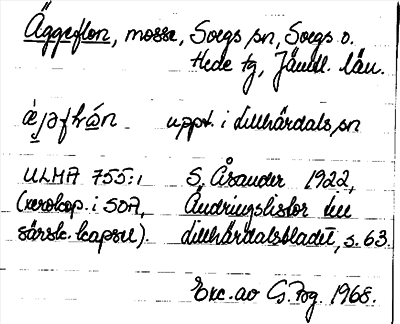 Äggeflon, mosse, Svegs sn, Svegs o.
Hede tg, Jämtl. län.
uppt. i Lillhärdals sn
ULMA 755:1 S. Åsander 1922,
(xerokop. i SOA, Ändringslistor till
särsk. kapsel). Lillhärdalsbladet, s. 63.
Exc. av G. Bg. 1968.